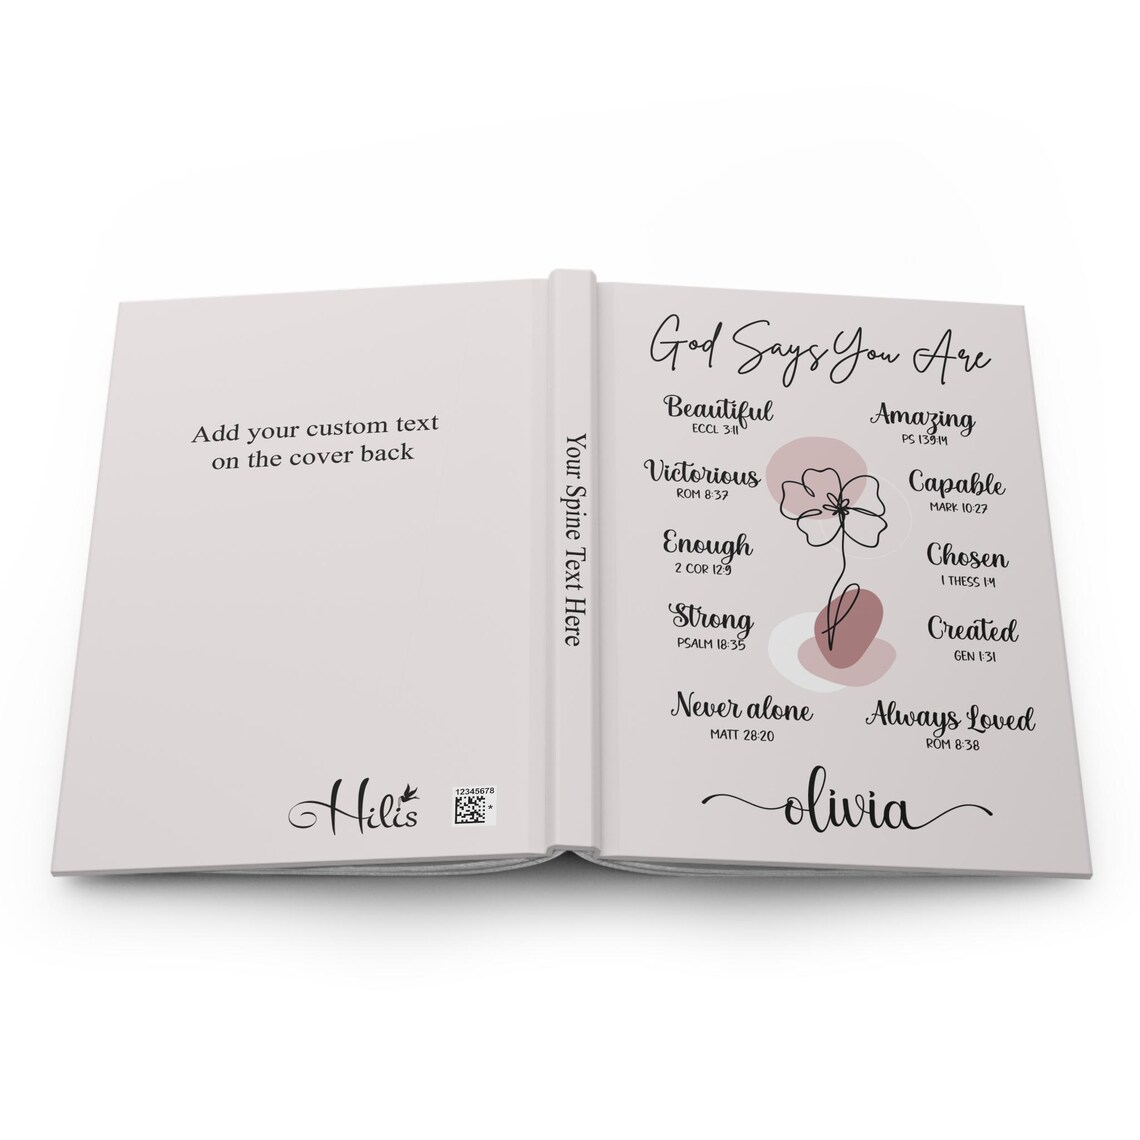 Add your custom text
on the cover back
Hilis
12345678
*
Your Spine Text Here
God Says You Are
Beautiful
ECCL 3:11
Amazing
PS 139:14
Victorious
ROM 8:37
Capable
MARK 10:27
Enough
2 COR 12:9
Chosen
1 THESS 1:4
Strong
PSALM 18:35
Created
GEN 1:31
Never alone
MATT 28:20
Always Loved
ROM 8:38
olivia